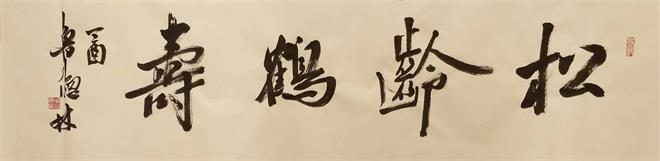 松齡鶴壽
丁酉